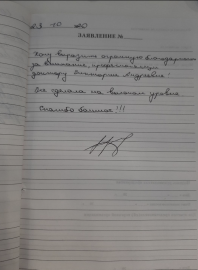 23 10 20
ЗАЯВЛЕНИЕ №
Хочу выразить огромную благодарность
за внимание, профессионализм
доктору Андреевне!
Все сделала на высшем уровне
Спасибо большое!!!